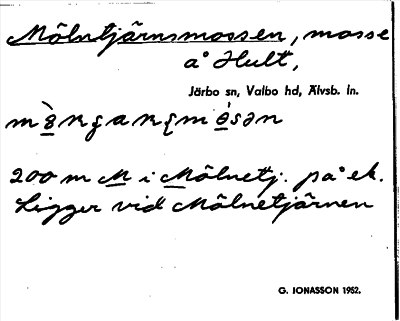 Mölnetjärnsmossen, mosse
å Hult,
Järbo sn, Valbo hd, Älvsb. ln.
200 m M i Mölnetj. på ek.
Ligger vid Mölnetjärnen
G. IONASSON 1952.